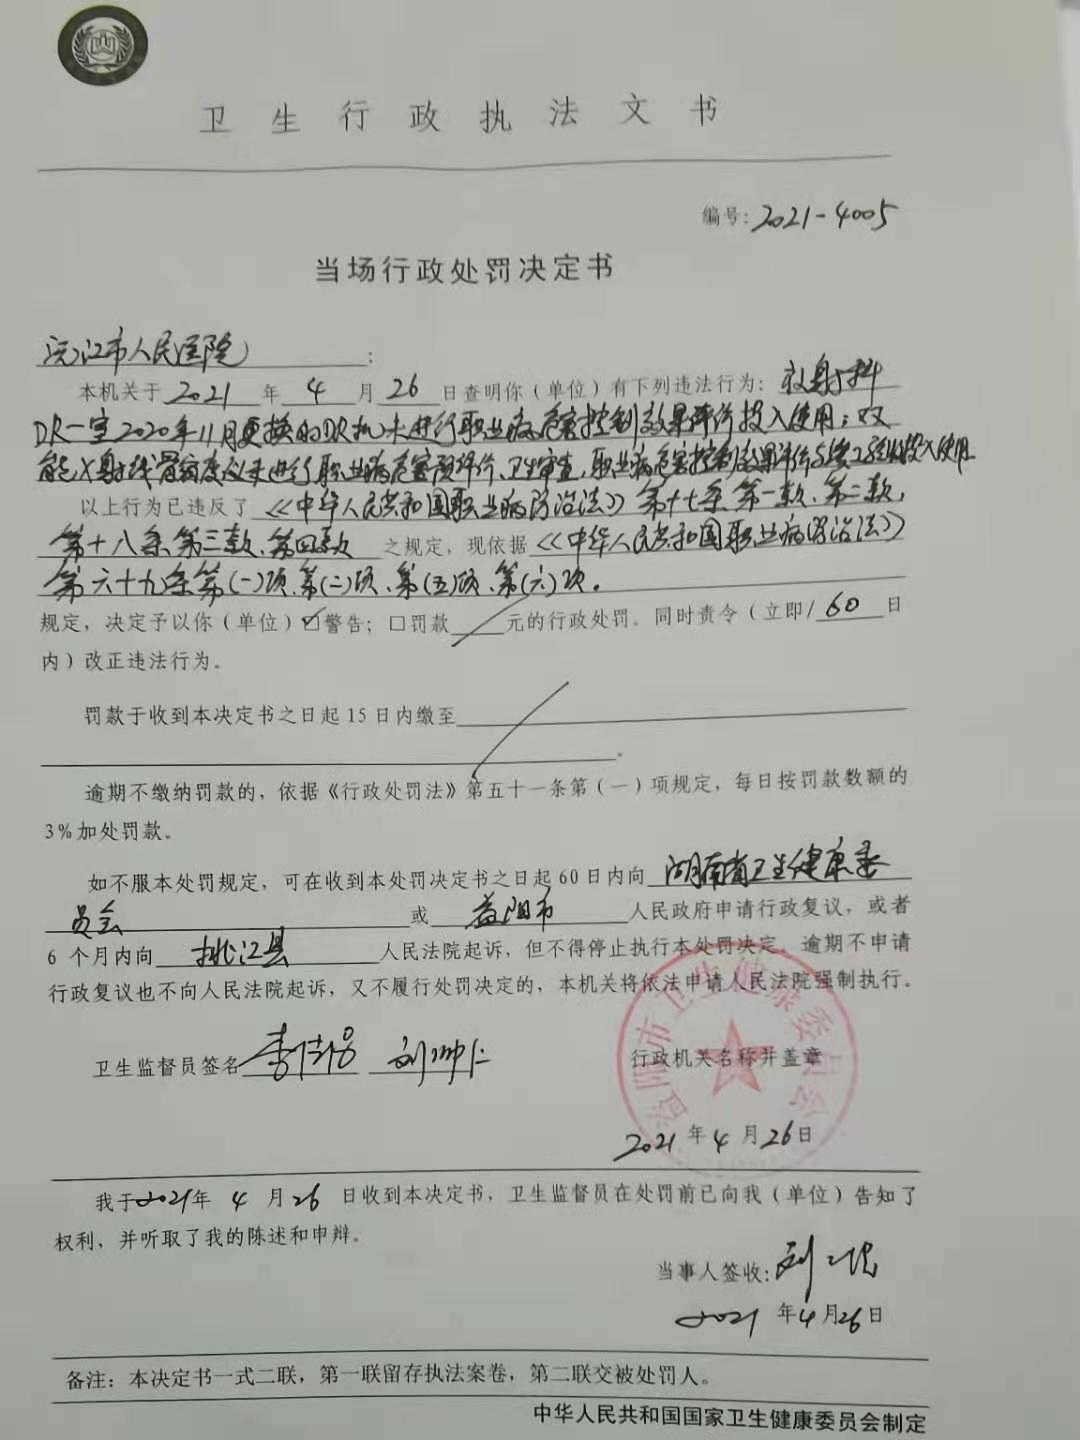 卫生行政执法文书
编号：2021-4005
当场行政处罚决定书
沅江市人民医院：
本机关于2021年4月26日查明你（单位）有下列违法行为：放射科
DR一室2020年11月更换的DR机未进行职业病危害控制效果评价投入使用；双
能X射线骨密度仪未进行职业病危害预评价、卫生审查，职业病危害控制效果评价与竣工验收投入使用
以上行为已违反了《中华人民共和国职业病防治法》第十七条第一款、第二款，
第十八条第三款、第四款之规定，现依据《中华人民共和国职业病防治法》
第六十九条第(一)项、第(二)项、第(五)项、第(六)项。
规定，决定予以你（单位）☑警告；□罚款 元的行政处罚。同时责令（立即/60日
内）改正违法行为。
罚款于收到本决定书之日起15日内缴至
。
逾期不缴纳罚款的，依据《行政处罚法》第五十一条第（一）项规定，每日按罚款数额的
3%加处罚款。
如不服本处罚规定，可在收到本处罚决定书之日起60日内向湖南省卫生健康委
员会或益阳市人民政府申请行政复议，或者
6个月内向桃江县人民法院起诉，但不得停止执行本处罚决定。逾期不申请
行政复议也不向人民法院起诉，又不履行处罚决定的，本机关将依法申请人民法院强制执行。
卫生监督员签名
行政机关名称并盖章
益阳市卫生健康委员会
2021年4月26日
我于2021年4月26日收到本决定书，卫生监督员在处罚前已向我（单位）告知了
权利，并听取了我的陈述和申辩。
当事人签收：刘
2021年4月26日
备注：本决定书一式二联，第一联留存执法案卷，第二联交被处罚人。
中华人民共和国国家卫生健康委员会制定